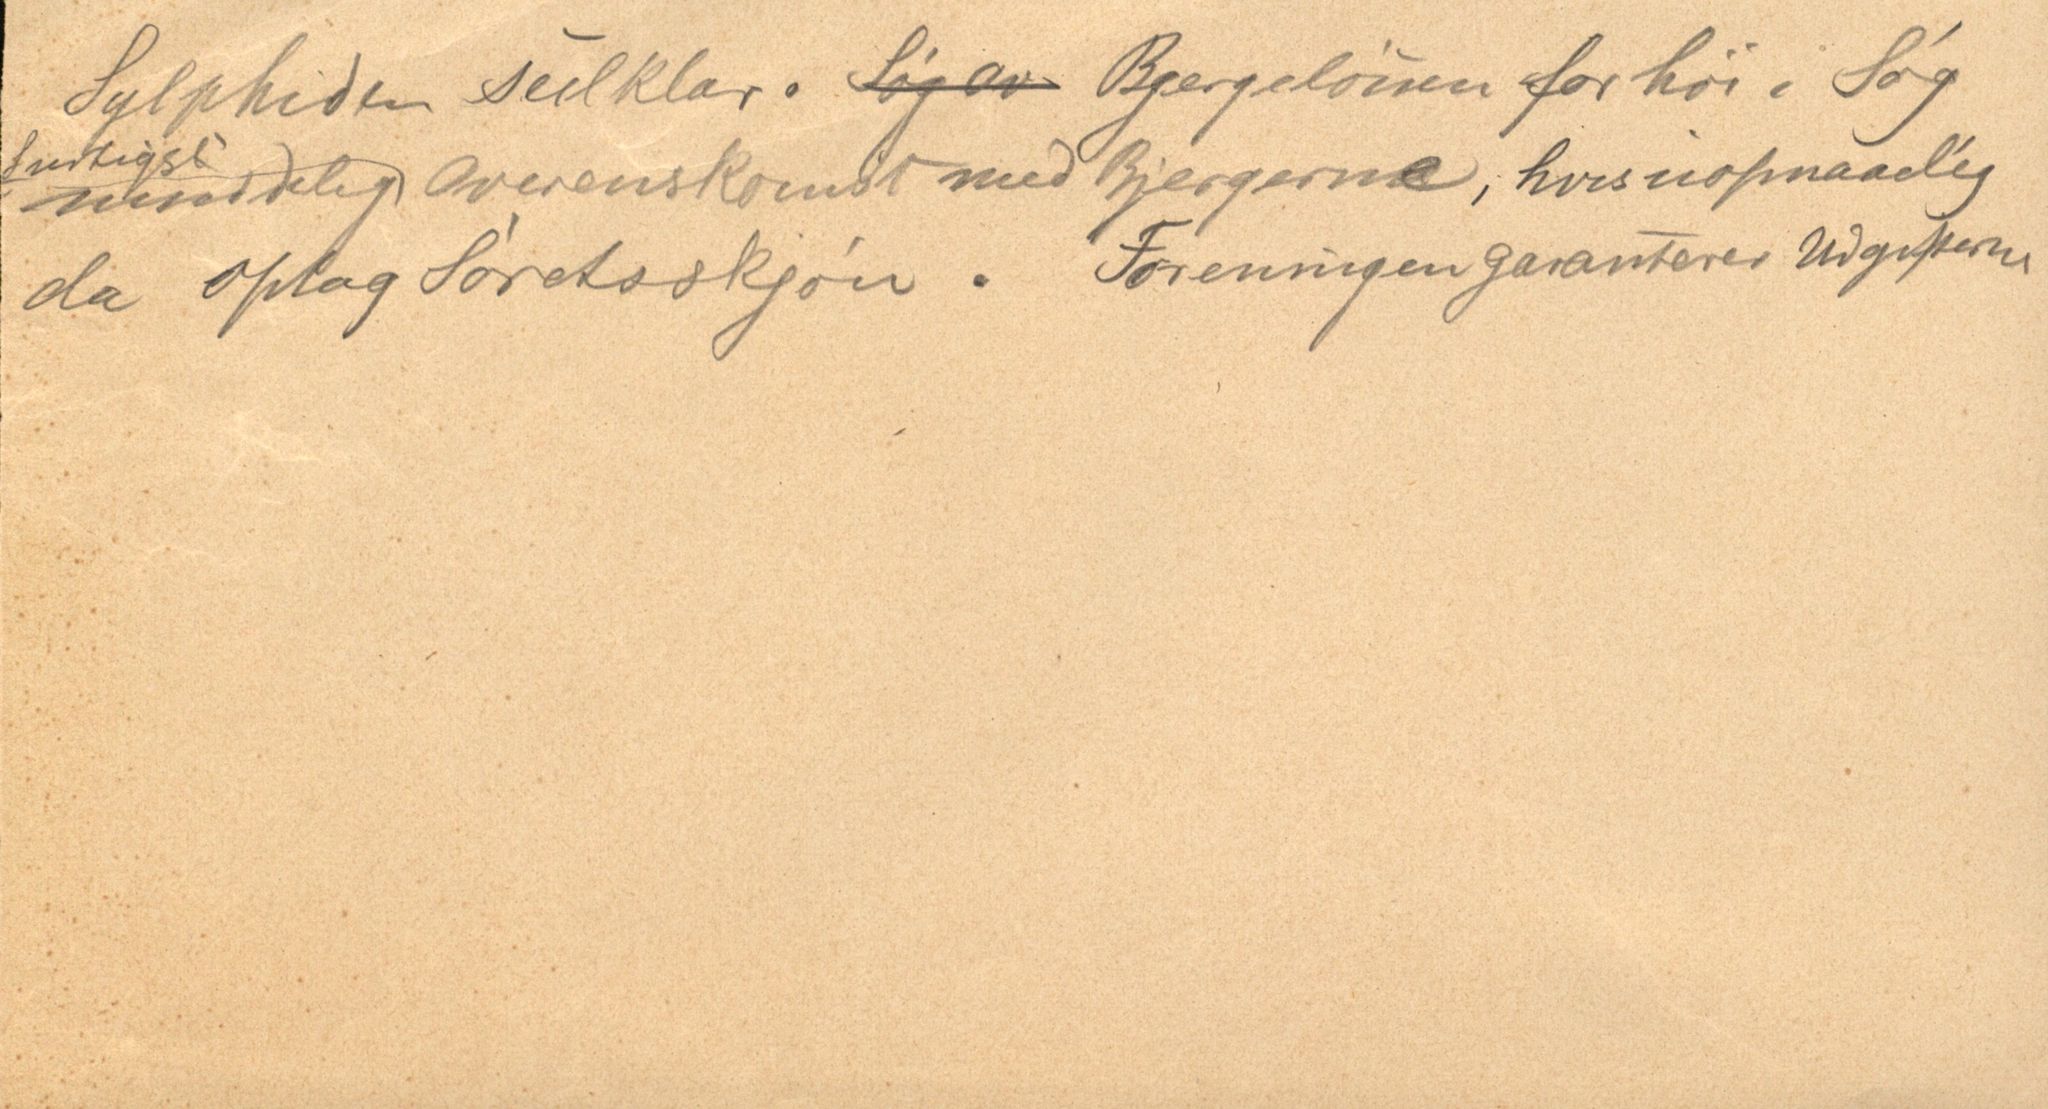 Sylphiden seilklar. Søg av Bjergelönen for höi. Søg
hurtigst
mindelig Overenskomst med Bjergerne, hvis uopnaaelig
da optag Søretsskjøn. Foreningen garanterer Udgifterne